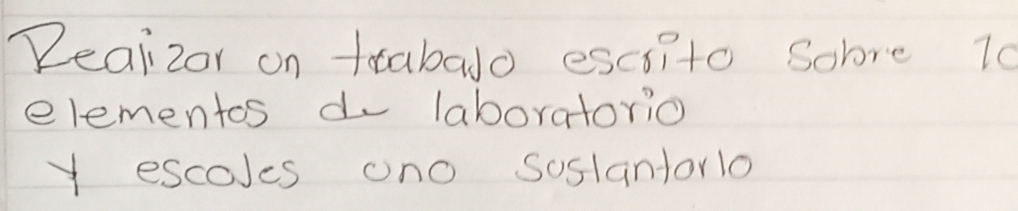 Realizar un trabajo escrito sobre 10
elementos de laboratorio
y escojes uno sustantarlo